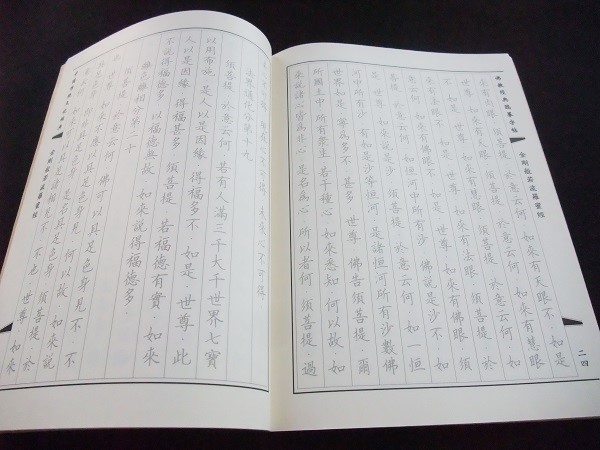 佛教經典臨摹字帖
金剛般若波羅蜜經
二四
來有肉眼 須菩提 於意云何 如來有天眼不·如是
世尊 如來有天眼 須菩提 於意云何 如來有慧眼
不 如是 世尊 如來有慧眼 須菩提 於意云何 如
來有法眼不 如是 世尊 如來有法眼 須菩提 於
意云何 如來有佛眼不 如是 世尊 如來有佛眼 須
菩提 於意云何 如恒河中所有沙 佛說是沙不 如
是 世尊 如來說是沙 須菩提 於意云何 如一恒
河中所有沙 有如是沙等恒河 是諸恒河所有沙數佛
世界 如是 寧為多不 甚多 世尊 佛告須菩提 爾
所國土中 所有眾生 若干種心 如來悉知 何以故 如
來說諸心 皆為非心 是名為心 所以者何 須菩提 過
去心不可得 現在心不可得 未來心不可得
法界通化分第十九
須菩提 於意云何 若有人滿三千大千世界七寶
以用布施 是人以是因緣 得福多不 如是·世尊·此
人以是因緣 得福甚多 須菩提 若福德有實·如來
不說得福德多 以福德無故 如來說得福德多·
離色離相分第二十
須菩提 於意云何 佛可以具足色身見不·不
也 世尊 如來不應以具足色身見·何以故 如來說
具足色身 即非具足色身 是名具足色身 須菩提·於
意云何 如來可以具足諸相見不·不也 世尊 如來
金剛般若波羅蜜經